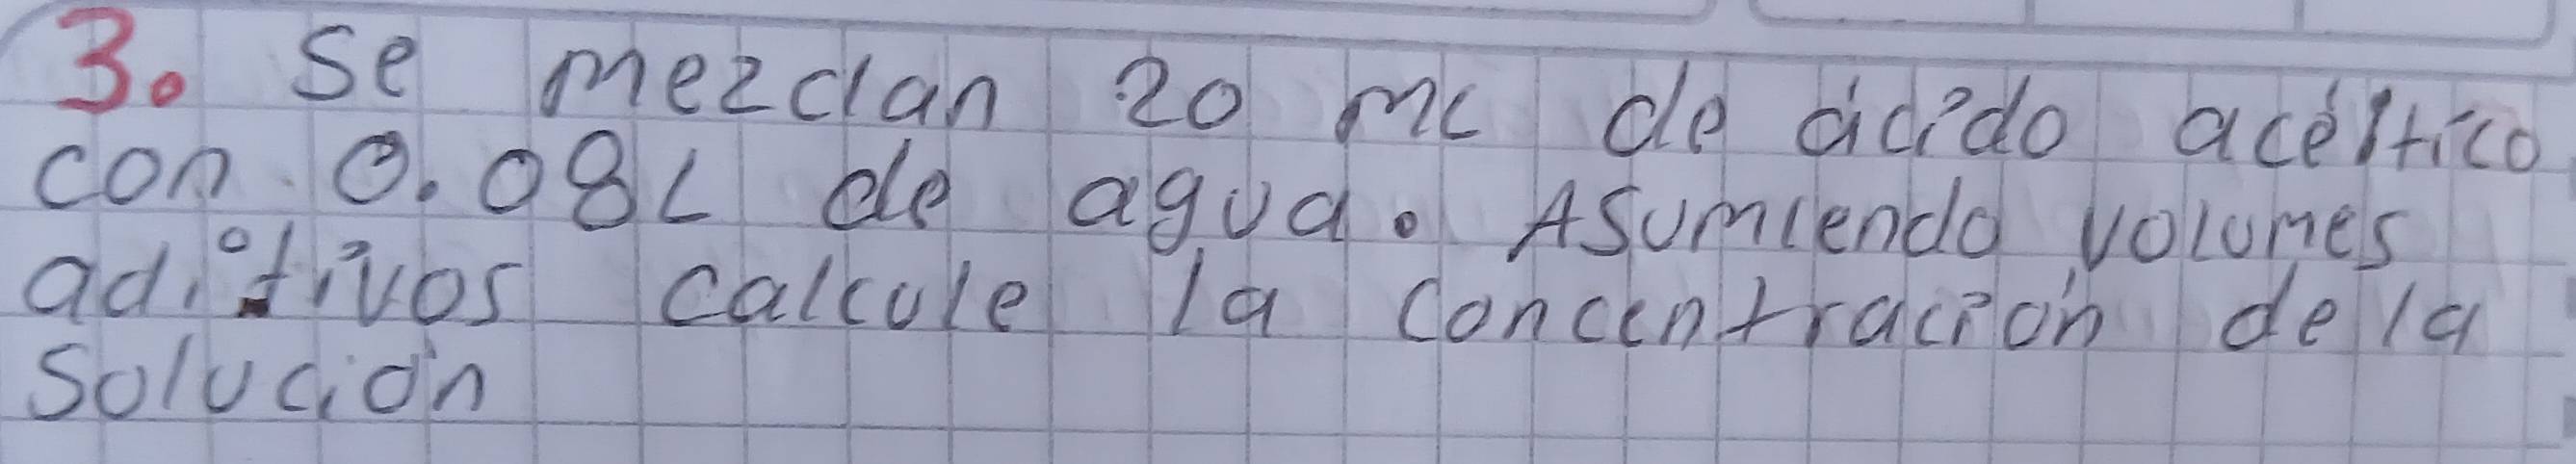 3. Se mezclan 20 mL de ácido acéltico
con 0.08L de agua. Asumiendo volumes
aditivos calcule la concentración de la
solución